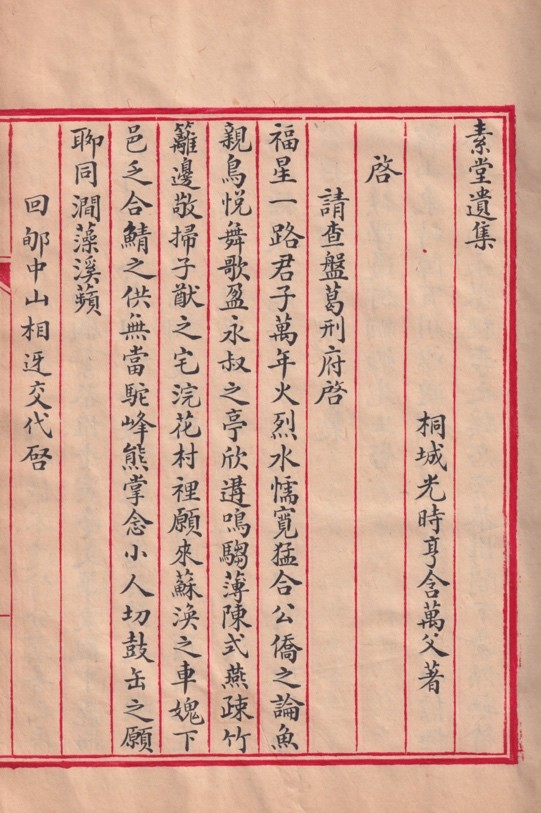 素堂遺集
桐城光時亨含萬父著
啓
請查盤葛刑府啓
福星一路君子萬年火烈水懦寬猛合公僑之論魚
親鳥悦舞歌盈永叔之亭欣遘鳴騶薄陳式燕疎竹
籬邊敬掃子猷之宅浣花村裡願來蘇渙之車媿下
邑乏合鯖之供無當駝峰熊掌念小人切鼓缶之願
聊同澗藻溪蘋
回郇中山相迓交代啓